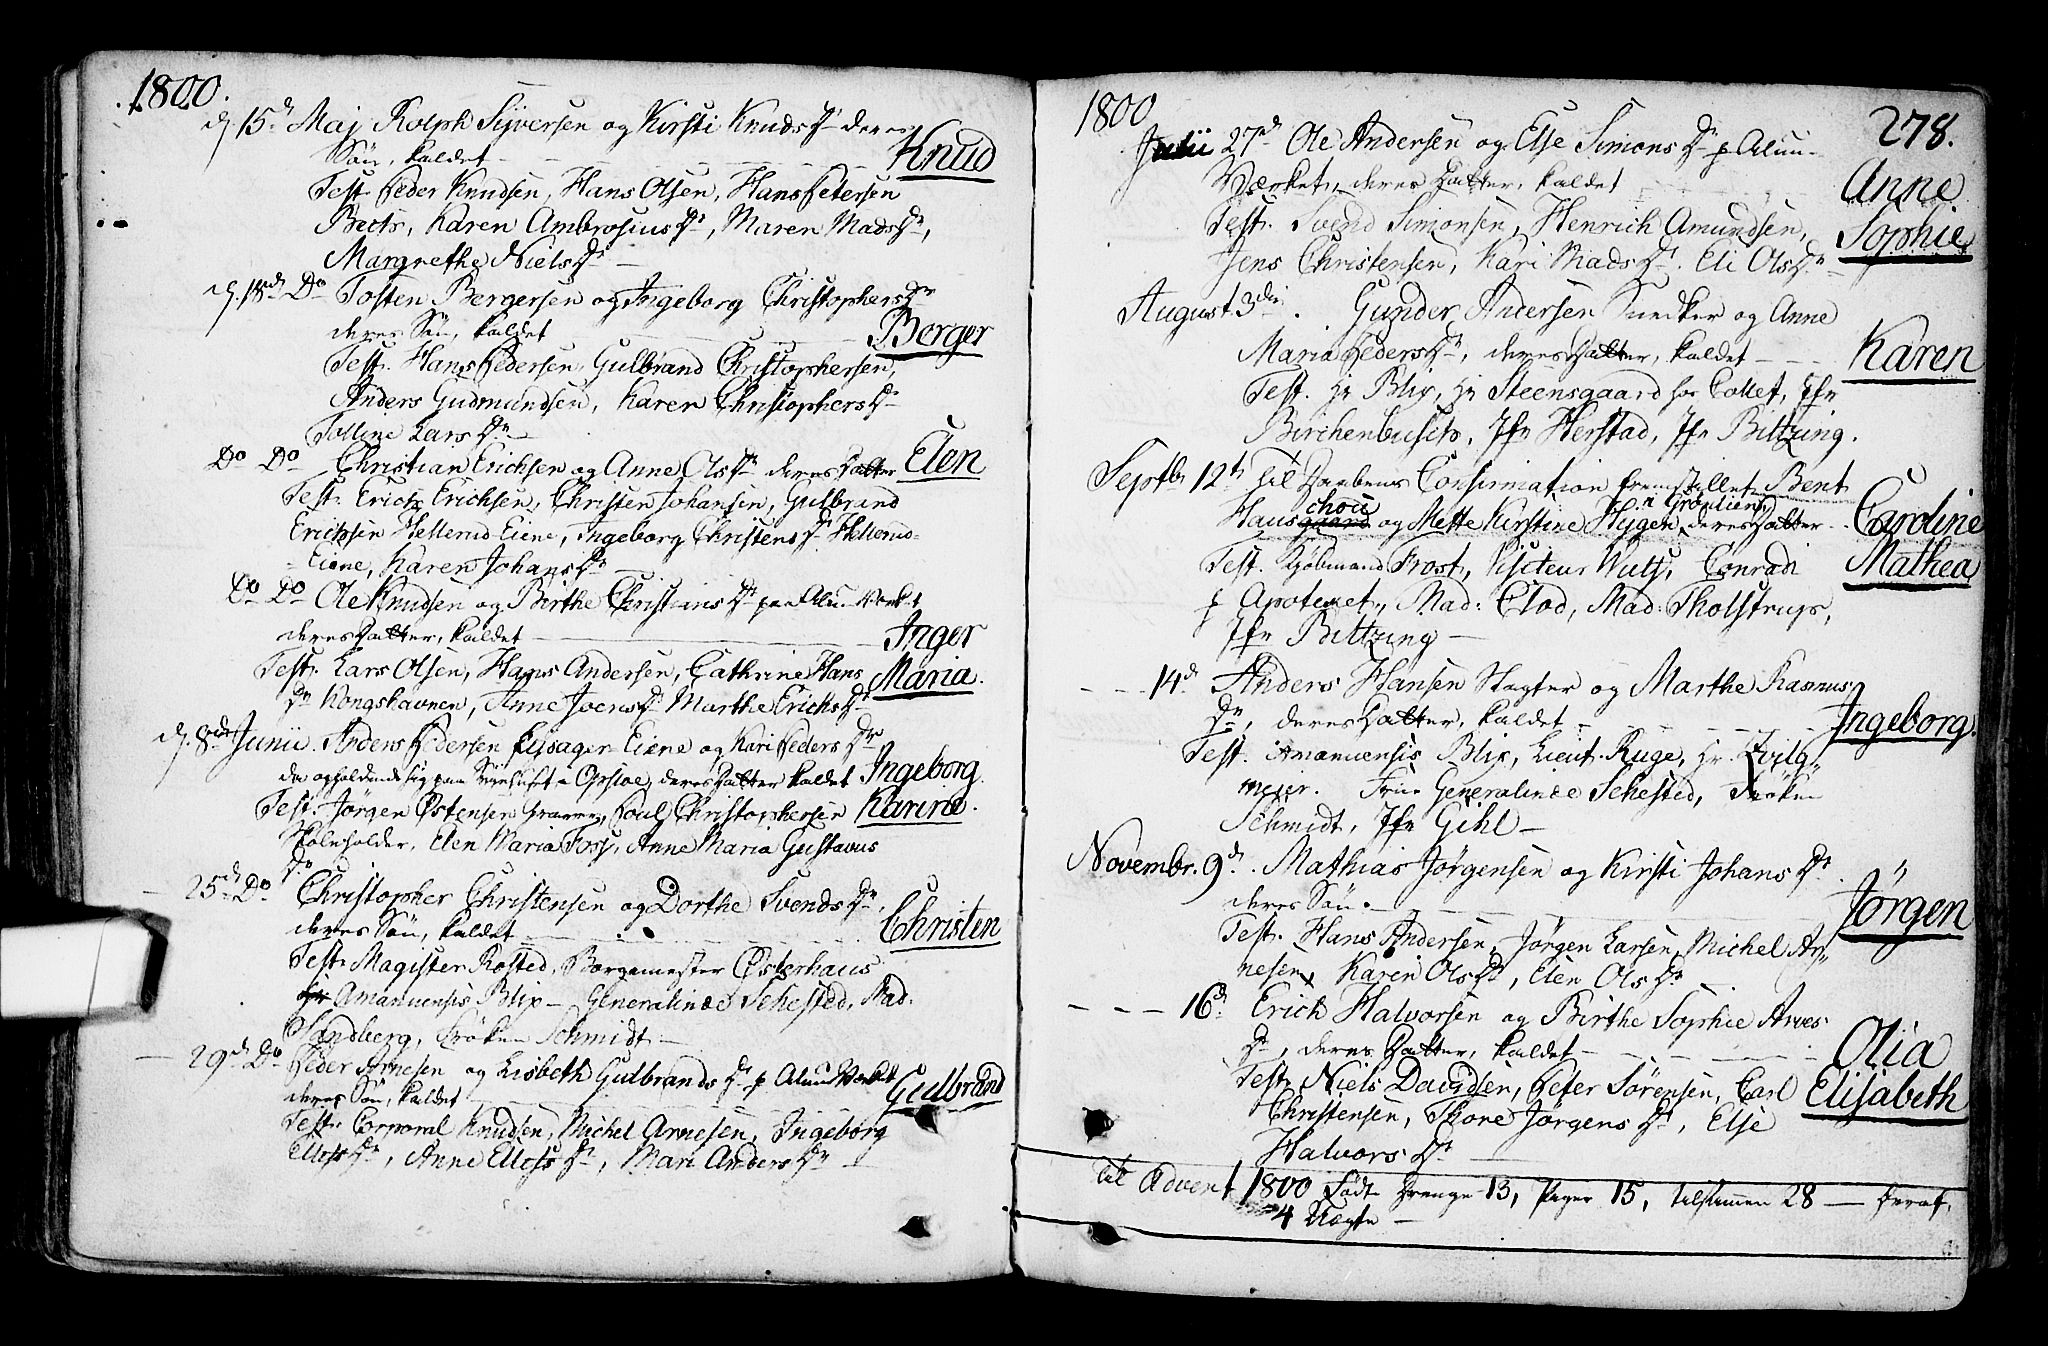 1800.
d. 15d Maj Rolph Syversen og Kirsti Knuds Dr deres
Søn, kaldet
Knud
Test. Peder Knudsen, Hans Olsen, Hans Petersen
Beets, Karen Ambrosius Dr, Maren Mads Dr,
Margrethe Niels Dr
d. 18d Do Tosten Bergersen og Ingeborg Christophers Dr
deres Søn, kaldet
Berger
Test. Hans Pedersen, Gulbrand Christophersen,
Anders Gudmundsen, Karen Christophers Dr
Tolline Lars Dr
Do Do Christian Erichsen og Anne Ols Dr deres Datter
Elen
Test. Erich Erichsen, Christen Johansen, Gulbrand
Erichsen Hellerud Eiene, Ingeborg Christens Dr Hellerud-
Eiene, Karen Johans Dr
Do Do Ole Knudsen og Birthe Christens Dr paa Alun Værket
deres Datter, kaldet
Inger
Maria.
Test. Lars Olsen, Hans Andersen, Cathrine Hans
Dr Kongshavnen, Anne Joens Dr Marthe Erichs Dr
d. 8de Junii. Anders Pedersen Eiene og Kari Peders Dr
opholdende sig paa Opsloe, deres Datter kaldet
Ingeborg
Karine.
Test. Jørgen Østensen Poul Christophersen
Skoleholder, Elen Maria Fosz, Anne Maria Gustavus
Dr
- 25d Do Christopher Christensen og Dorthe Svends Dr,
deres Søn, kaldet
Christen
Test. Magister Rosted, Borgemester Østerhaus
Amanuensis Blix - Generalinde Sehested, Mad.
Sandberg, Frøken Schmidt -
- 29d Do Peder Arnesen og Lisbeth Gulbrands Dr p Alun Værket
deres Søn, kaldet
Gulbrand
Test. Corporal Knudsen, Michel Arnesen, Ingeborg
Dr, Anne Dr, Mari Anders Dr
1800
278.
Julii 27d Ole Andersen og Else Simons Dr p Alun-
Værket, deres Datter, kaldet
Anne
Sophie
Test. Svend Simonsen, Henrich Amundsen,
Jens Christensen, Kari Mads Dr. Eli Ols Dr
August 3die. Gunder Andersen Snedker og Anne
Maria Peders Dr, deres Datter, kaldet
Karen
Test. Hr Blix, Hr Steensgaard hos Collet, Jfr
Birchenbusch, Jfr Herstad, Jfr Biltzing.
Septbr 12te Til Daabens Confirmation fremstillet Bent
chou i Grønlien
Hausgaard og Mette Kirstine Hygen, deres Datter
Caroline
Mathea
Test. Kjøbmand Frost, Visiteur Wulf, Conradi
p Apoteket, Mad: Clod, Mad: Tholstrup,
Jfr Biltzing -
- - - 14d. Anders Hansen Slagter og Marthe Rasmus
Dr, deres Datter, kaldet
Ingeborg.
Test. Amanuensis Blix, Lieut. Ruge, Hr. Zvilg-
meier. Frue Generalinde Sehested, Frøken
Schmidt, Jfr Gihl -
Novembr. 9d. Mathias Jørgensen og Kirsti Johans Dr
deres Søn.
Jørgen
Test. Hans Andersen, Jørgen Larsen, Michel Ar-
nesen, Karen Ols Dr, Elen Ols Dr
- - - 16d. Erich Halvorsen og Birthe Sophie Arves
Dr, deres Datter, kaldet
Olia
Elisabeth
Test. Niels Davidsen, Peter Sørensen, Carl
Christensen, Thore Jørgens Dr, Else
Halvors Dr
Til Advent 1800 Født Drenge 13, Piger 15, tilsammen 28 - heraf
4 Uægte -